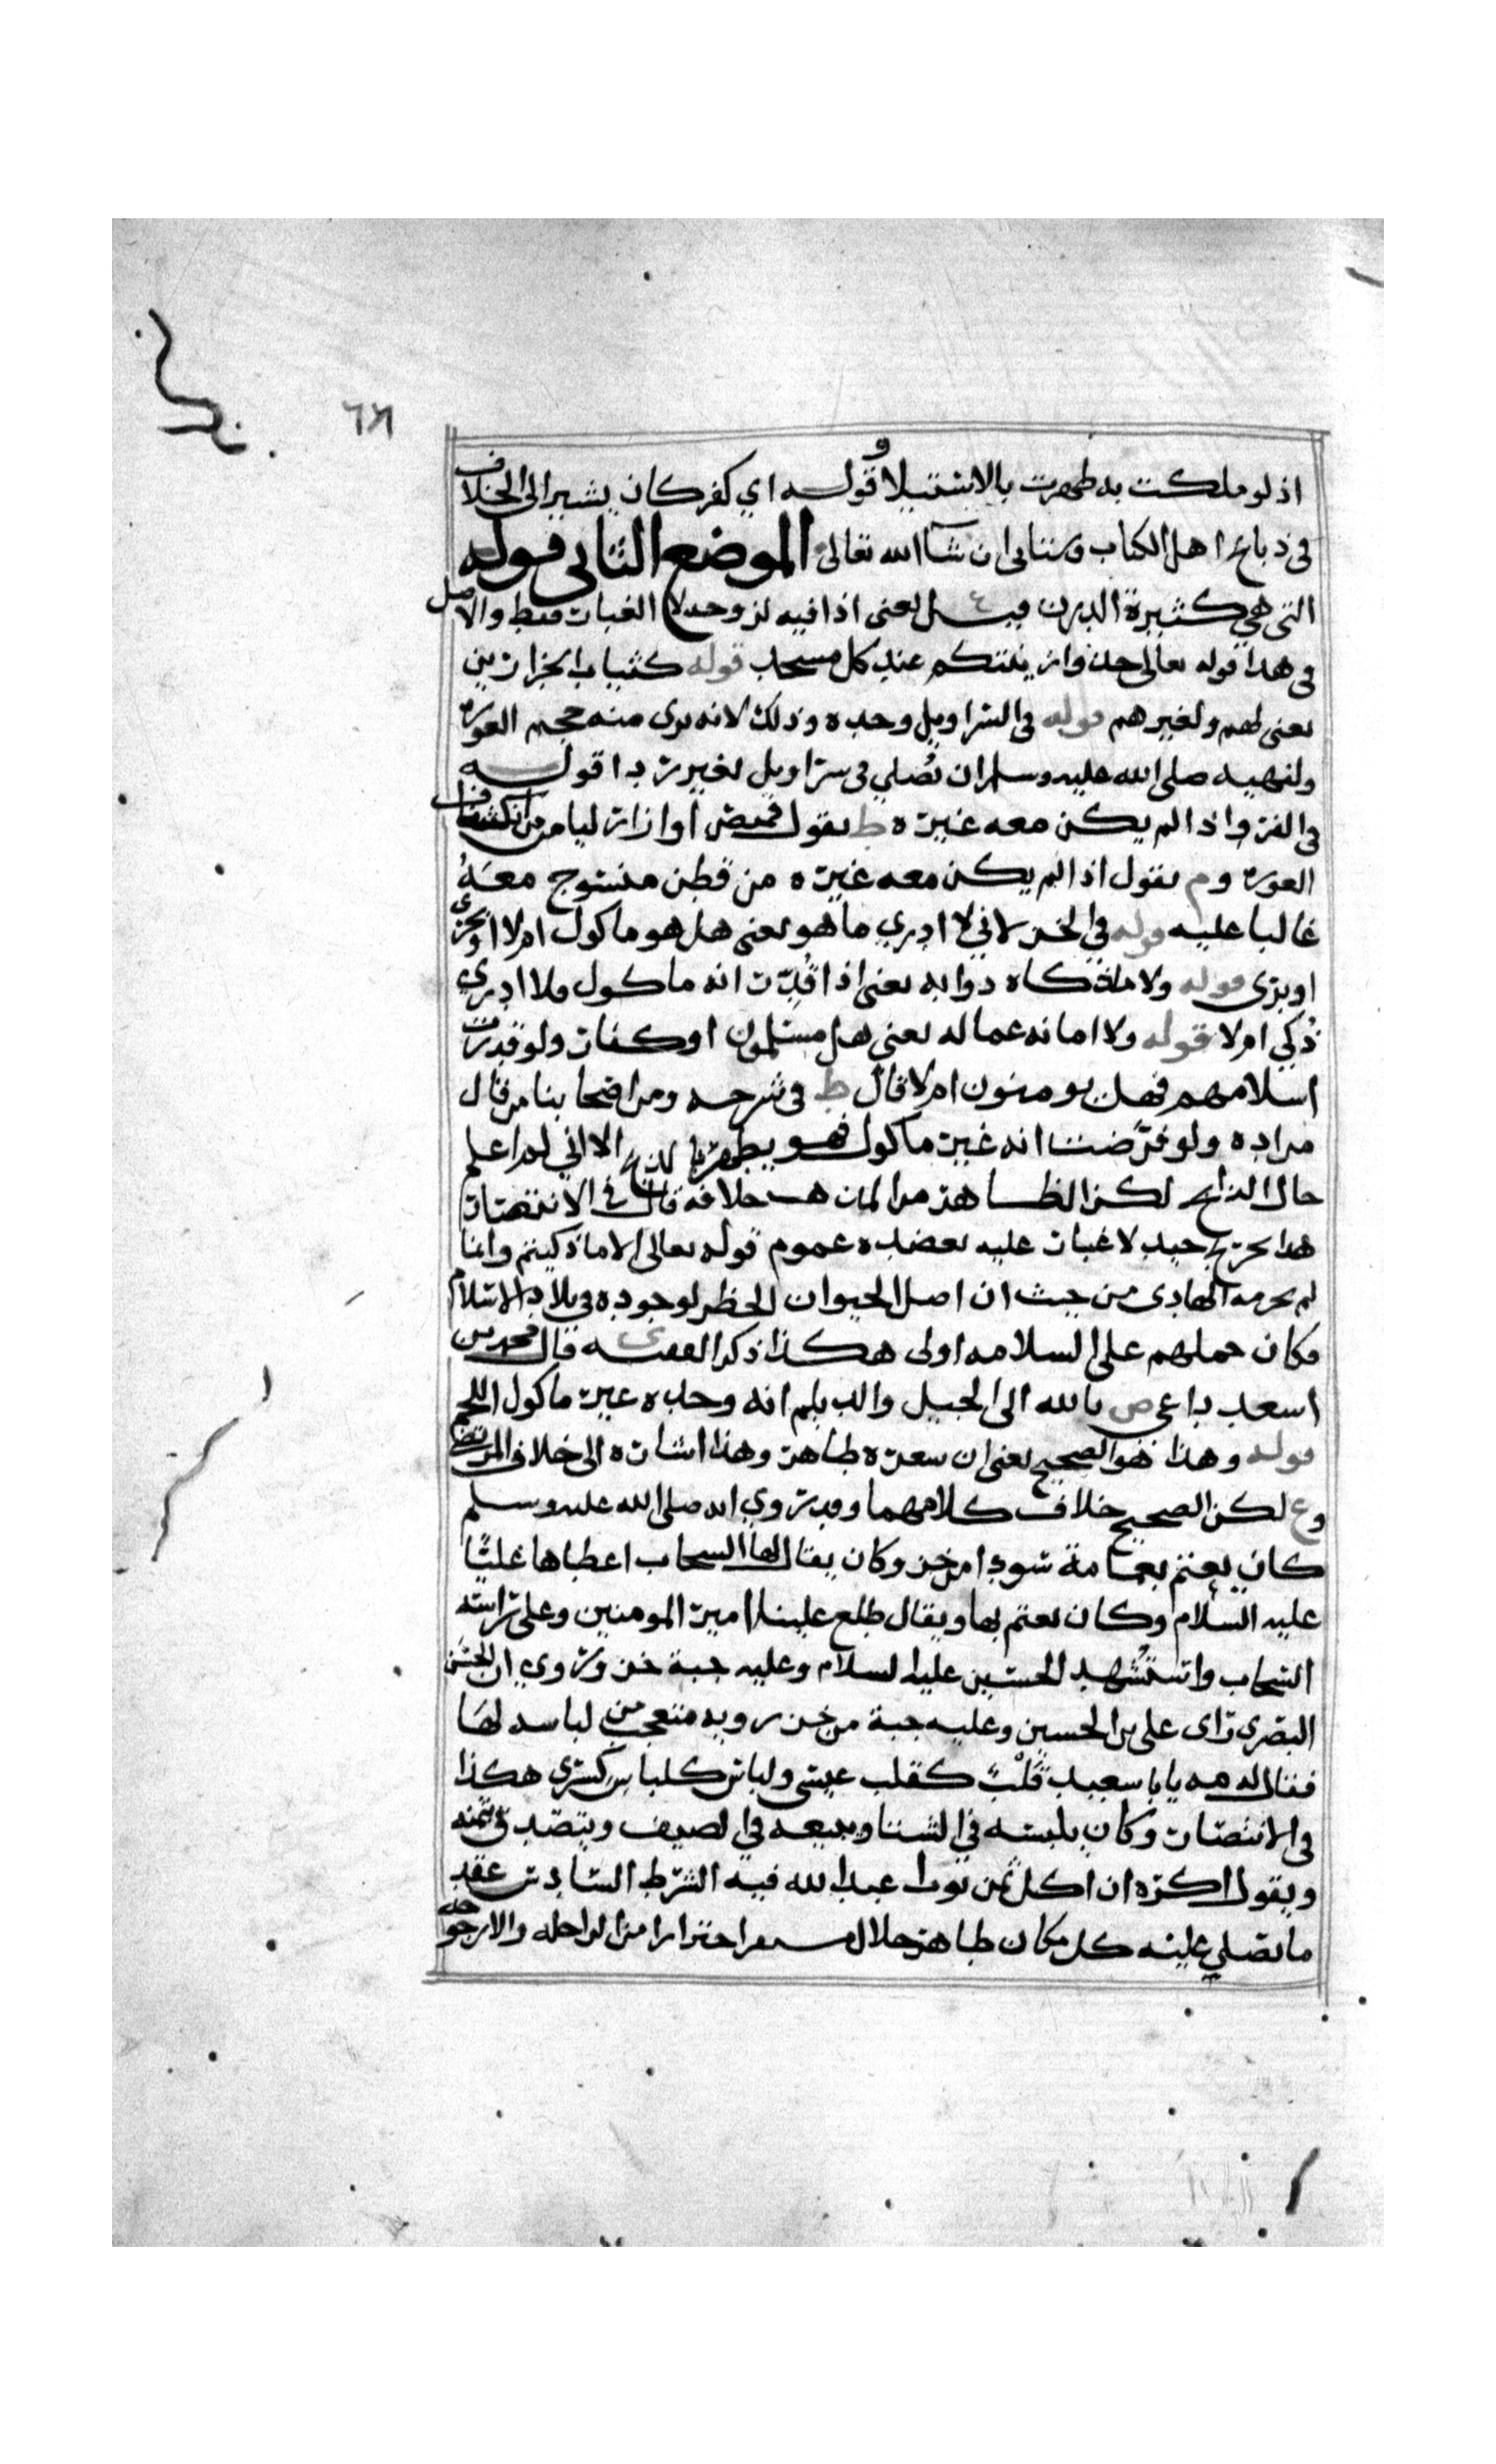 اذ لو ملكت به طهرت بالاستيلا وقوله اي كفر كان يشير الى الخلاف
في ذبايح اهل الكتاب وسياتي ان شآ الله تعالى الموضع الثاني قوله
التي هي كثيرة الدرن قيل يعني اذا فيه لزوجه لا الغبار فقط والاصل
في هذا قوله تعالى خذوا زينتكم عند كل مسجد قوله كثياب الجزارين
يعني لهم ولغيرهم قوله في السراويل وحده وذلك لانه يرى منه حجم العورة
ولنهيه صلى الله عليه وسلم ان يُصلي في سراويل لغير ردا قوله
في الفرو اذا لم يكن معه غيره ط يقول قميص او ازار ليامن من انكشاف
العورة وم يقول اذا لم يكن معه غيره من قطن منسوج معهُ
غالبا عليه قوله في الخز لاني لا ادري ما هو يعني هل هو ماكول ام لا
او بري قوله ولا ما ذكاه دوابه يعني اذا قُدِّرت انه ماكول فلا ادري
ذُكي ام لا قوله ولا امانه عماله يعني هل مسلمون او كفار ولو قدرت
اسلامهم فهل يومنون ام لا قال ط في شرحه ومن اصحابنا من قال
مراده ولو فرّضنا انه غير ماكول فهو يطهر الا اني لم اعلم
حال الذابح لكن الظاهر من المذهب خلافه قال في الانتصار
هذا تخريج جيد لا غبار عليه يعضده عموم قوله تعالى الا ما ذكيتم وانما
لم يحرمه الهادي من حيث ان اصل الحيوان الحظر لوجوده في بلاد الاسلام
فكان حملهم على السلامه اولى هكذا ذكر الفقيه قال محمد بن
اسعد داعي ص بالله الى الجبيل والديلم انه وحده غير ماكول اللحم
قوله وهذا هو الصحيح يعني ان شعره طاهر وهذا اشاره الى خلاف المرتضى
وع لكن الصحيح خلاف كلامهما وقد رُوي انه صلى الله عليه وسلم
كان يعتم بعمامة سودا من خز وكان يقال لها السحاب اعطاها عليًّا
عليه السلام وكان يعتم بها ويقال طلع علينا امير المومنين وعلى راسه
السحاب واستُشهد الحسين عليه السلام وعليه جبة خز ورُوي ان الحسن
البصري راى علي بن الحسين وعليه جبة من خز فتعجب من لباسه لها
فقال له مه يابا سعيد قَلْبٌ كقلب عيسى ولباس كلباس كسرى هكذا
في الانتصار وكان يلبسه في الشتا ويبيعه في الصيف ويتصدق بثمنه
ويقول اكره ان اكل ثمن ثوب اعبد الله فيه الشرط السادس عقد
ما يصلي عليه كل مكان طاهر حلال احترازا من الراحله والارجوحه